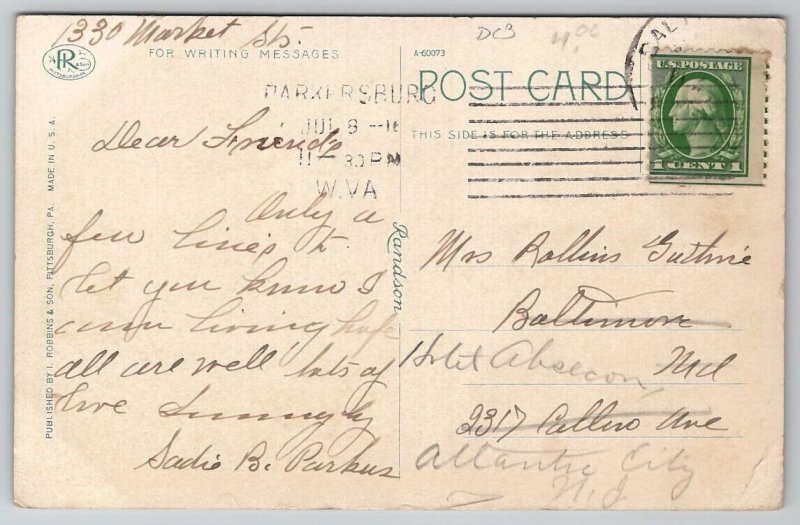 1330 Market St.
FOR WRITING MESSAGES
R
PITTSBURGH, PA.
A-60073
DC3
4.00
POST CARD
THIS SIDE IS FOR THE ADDRESS
PARKERSBURG
JUL 8 -16
11 - 30 PM
W.VA
U.S. POSTAGE
1 CENT 1
Dear Friends
Only a
few lines to
let you know I
am living hope
all are well lots of
love
Sadie B. Parkus
Randson
PUBLISHED BY I. ROBBINS & SON, PITTSBURGH, PA. MADE IN U.S.A.
Mrs Rollins Guthrie
Baltimore
Hotel Absecon, Md
2317 Callow Ave
Atlantic City
N.J